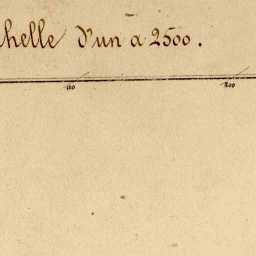 helle d'un a 2500.
100 200